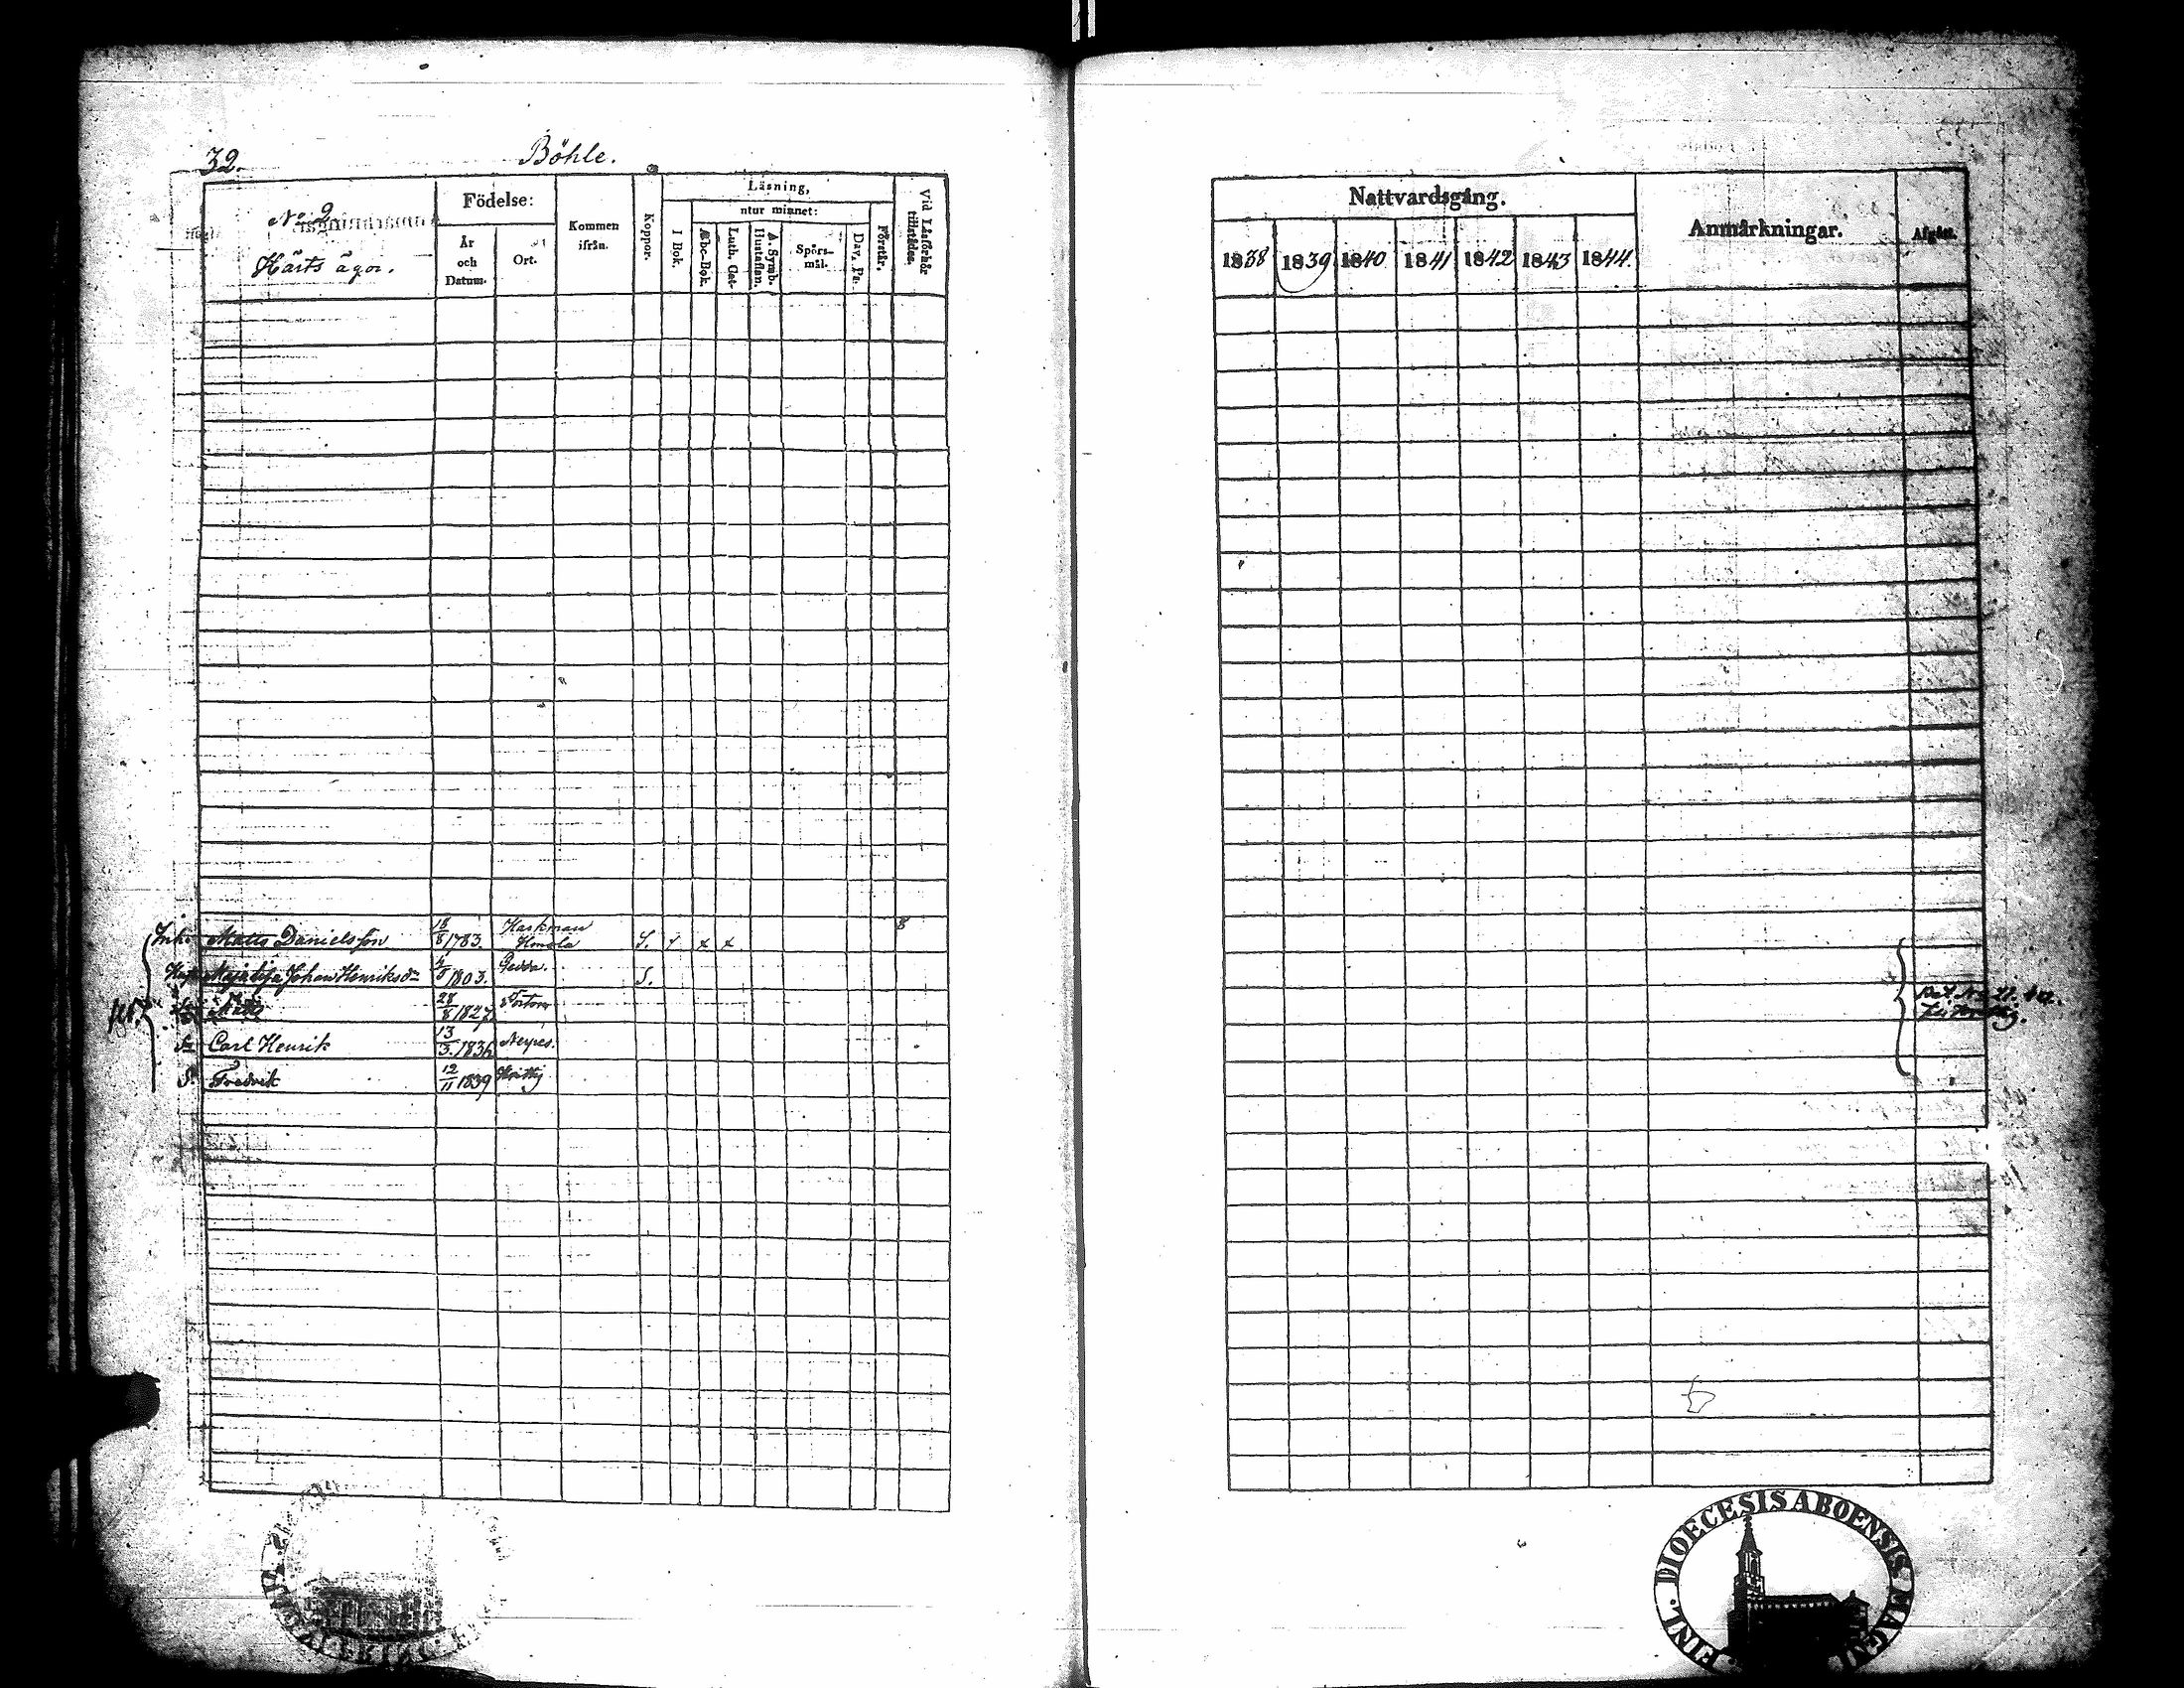 32.
Böhle.
No 2
Härts ägor.
Födelse:
År
och
Datum.
Ort.
Kommen
ifrån.
Koppor.
Läsning,
utur minnet:
I Bok.
Abc-Bok.
Luth. Cat-
A. Symb.
Hustaflan.
Spörs-
mål.
Dav. Ps.
Förstår.
Vid Läsförhör
tillstädes.
Inh. Matts Danielsson 18/8 1783. Kaskmau Hmola S. 8
Majalisa Johan Henriksdr 4/8 1803. S.
Matts 28/8 1827
Sn Carl Henrik 13/3. 1836 Nerpes.
S. Fredrik 12/11 1839
Nattvardsgång.
1838 1839 1840 1841 1842 1843 1844.
Anmärkningar.
Afgått.
FINL. DIOECESIS ABOENSIS MAGNI